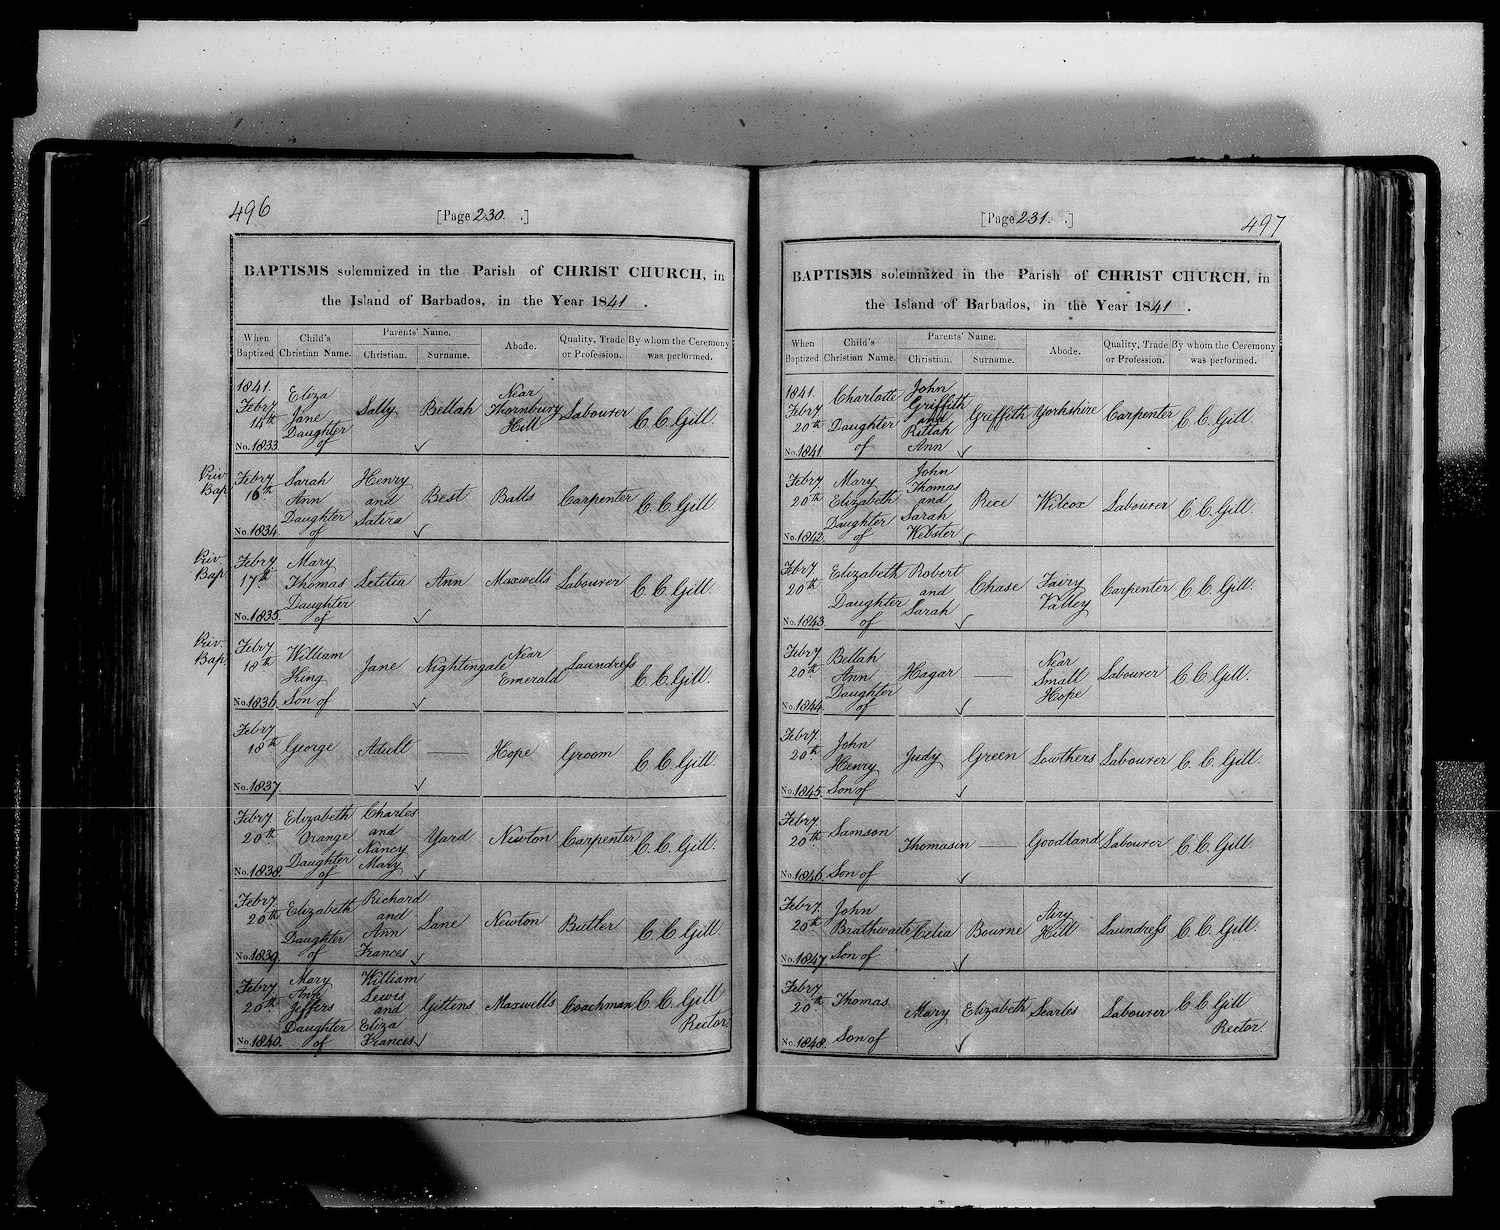 496
[Page 230. .]
BAPTISMS solemnized in the Parish of CHRIST CHURCH, in
the Island of Barbados, in the Year 1841 .
When Baptized
Child's Christian Name.
Parents' Name.
Christian.
Surname.
Abode.
Quality, Trade or Profession.
By whom the Ceremony was performed.
1841. Febry 14th No. 1833 Eliza Jane Daughter of Sally Bellah Near Thornbury Hill Labourer C. C. Gill.
Priv Bap Febry 16th No. 1834 Sarah Ann Daughter of Henry and Satira Best Balls Carpenter C. C. Gill
Priv Bap Febry 17th No. 1835 Mary Thomas Daughter of Letitia Ann Maxwells Labourer C. C. Gill.
Priv. Bap. Febry 18th No. 1836 William King Son of Jane Nightingale Near Emerald Laundress C. C. Gill.
Febry 18th No. 1837 George Adult — Hope Groom C. C. Gill
Febry 20th No. 1838 Elizabeth Orange Daughter of Charles and Nancy Mary Yard Newton Carpenter C. C. Gill.
Febry 20th No. 1839 Elizabeth Daughter of Richard and Ann Frances Lane Newton Butler C. C. Gill
Febry 20th No. 1840. Mary Ann Jeffers Daughter of William Lewis and Eliza Frances Gittens Maxwells Coachman C. C. Gill Rector
[Page 231. .]
497
BAPTISMS solemnized in the Parish of CHRIST CHURCH, in
the Island of Barbados, in the Year 1841 .
When Baptized
Child's Christian Name.
Parents' Name.
Christian.
Surname.
Abode.
Quality, Trade or Profession.
By whom the Ceremony was performed.
1841. Febry 20th No. 1841 Charlotte Daughter of John Griffith and Rittah Ann Griffith Yorkshire Carpenter C. C. Gill
Febry 20th No. 1842 Mary Elizabeth Daughter of John Thomas and Sarah Webster Rice Wilcox Labourer C. C. Gill.
Febry 20th No. 1843 Elizabeth Daughter of Robert and Sarah Chase Fairy Valley Carpenter C. C. Gill.
Febry 20th No. 1844 Bellah Ann Daughter of Hagar — Near Small Hope Labourer C. C. Gill.
Febry 20th No. 1845 John Henry Son of Judy Green Lowthers Labourer C. C. Gill.
Febry 20th No. 1846 Samson Son of Thomasin — Goodland Labourer C. C. Gill.
Febry 20th No. 1847 John Brathwaite Son of Celia Bourne Airy Hill Laundress C. C. Gill.
Febry 20th No. 1848 Thomas Son of Mary Elizabeth Searles Labourer C. C. Gill Rector.